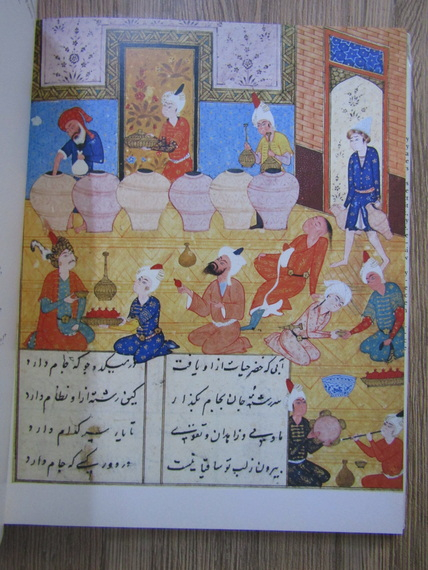 آبی که خضر حیات ازو یافت در میکده جو که جام دارد
سررشته جان بجام بگذار کین رشته ازو نظام دارد
ما و می و زاهدان و تقوی تا یار سر کدام دارد
بیرون ز لب تو ساقیا نیست در دور کسی که کام دارد